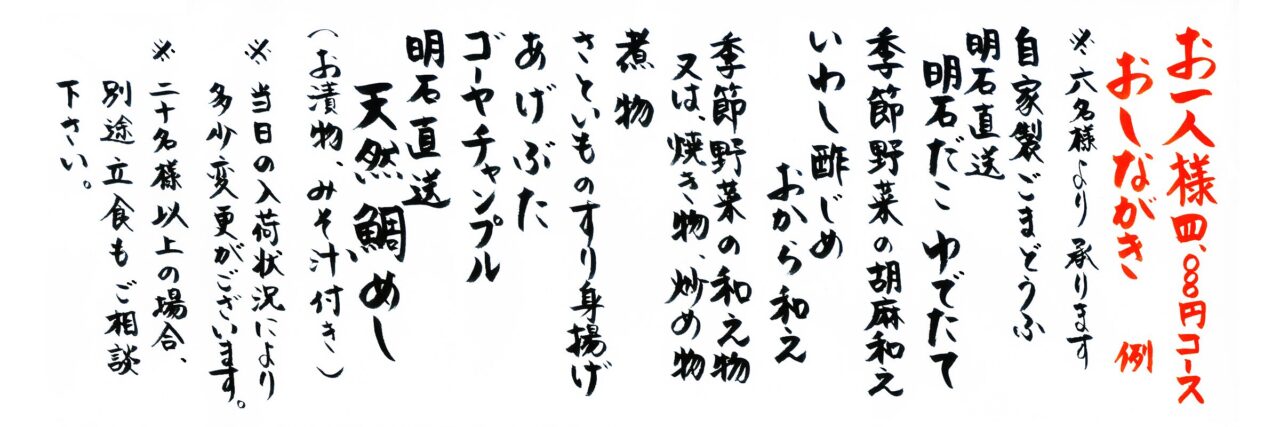 お一人様四、〇〇〇円コース
おしながき 例
※六名様より承ります
自家製ごまどうふ
明石直送
明石だこ ゆでたて
季節野菜の胡麻和え
いわし酢じめ
おから和え
季節野菜の和え物
又は、焼き物、炒め物
煮物
さといものすり身揚げ
あげぶた
ゴーヤチャンプル
明石直送
天然鯛めし
(お漬物、みそ汁付き)
※当日の入荷状況により
多少変更がございます。
※二十名様以上の場合、
別途立食もご相談
下さい。